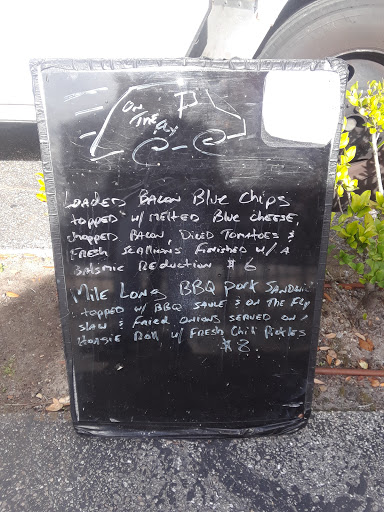 On
The Fly
Loaded Bacon Blue Chips
topped w/ melted Blue Cheese,
chopped Bacon, Diced Tomatoes &
Fresh Scallions Finished w/ a
Balsmic Reduction $6
Mile Long BBQ Pork Sandwich
topped w/ BBQ Sauce & on the Fly
Slaw & Fried onions served on a
Hoagie Roll w/ Fresh Chili Pickles
$8